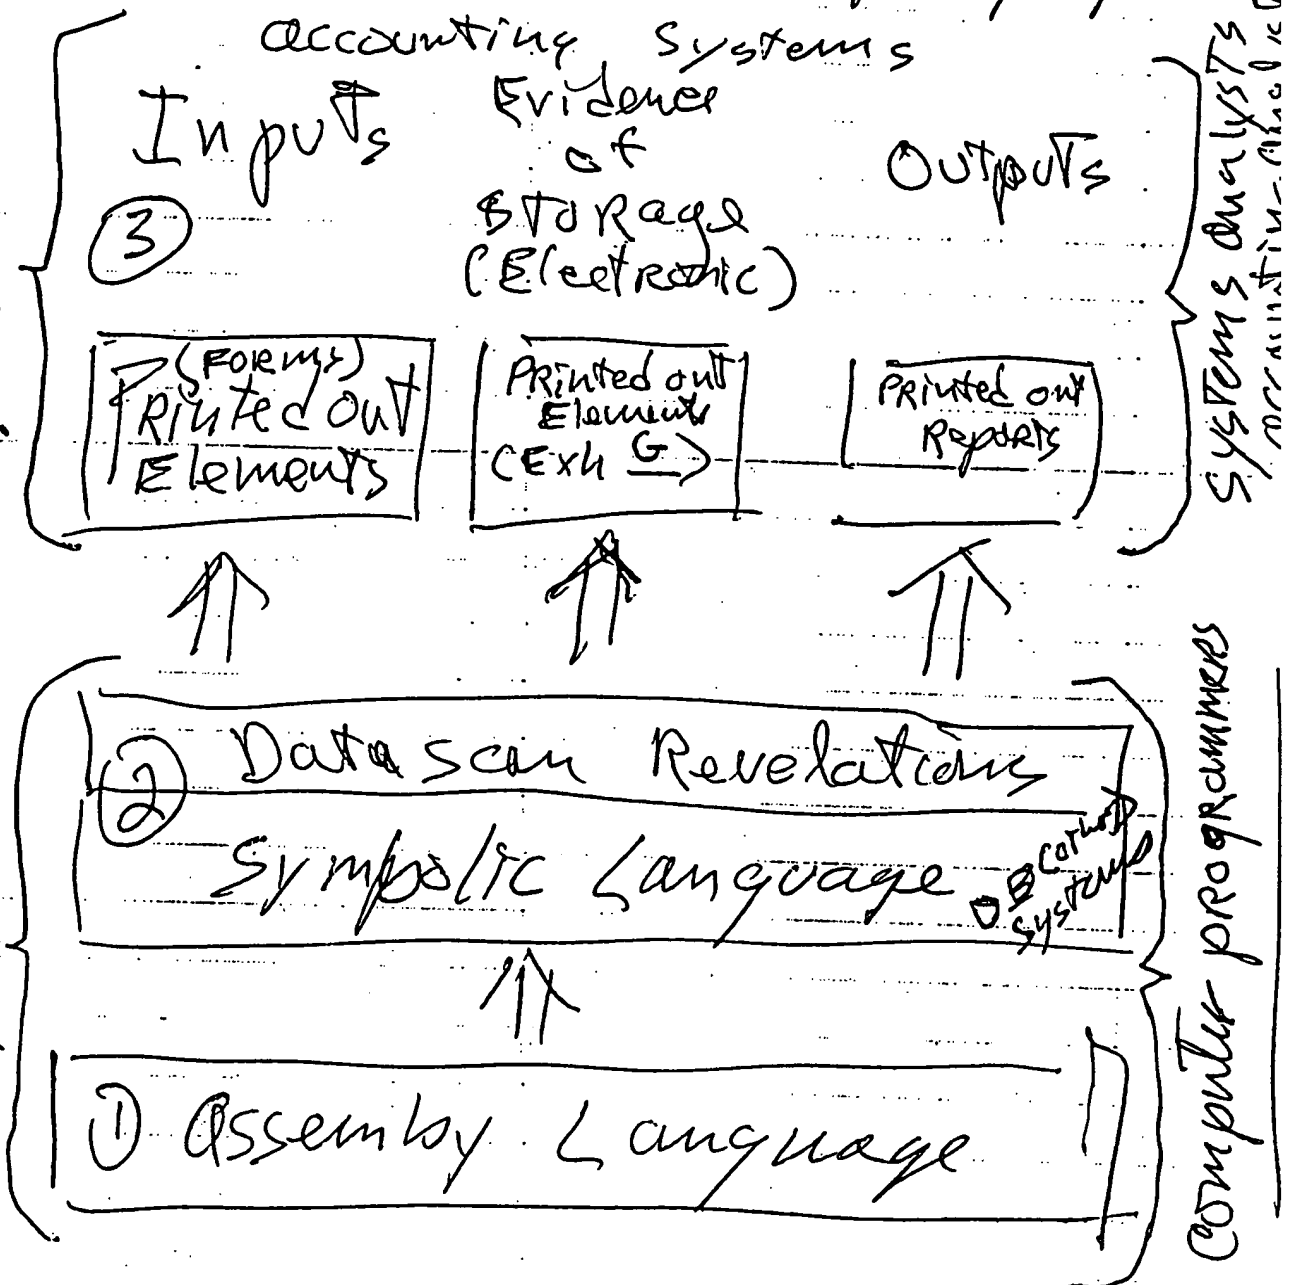 accounting Systems
Inputs
Evidence
of
STORage
(Electronic)
Outputs
3
(FORMS)
PRinted Out
Elements
PRinted out
Elements
(Exh G)
PRinted out
Reports
Systems analysts
2
Data scan Revelations
Symbolic Language
Systems
1
assembly Language
Computer programmers